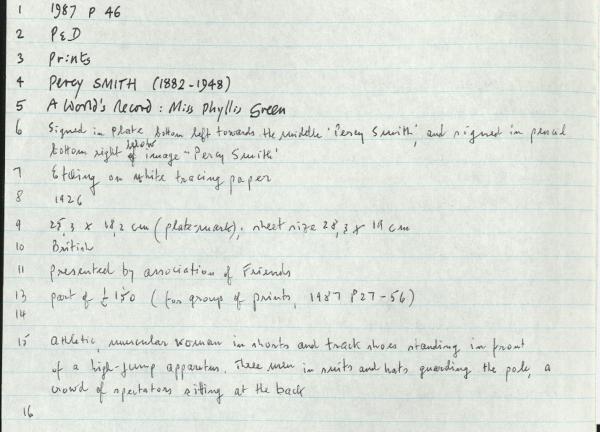 1 1987 P 46
2 P&D
3 Prints
4 Percy SMITH (1882-1948)
5 A World's Record : Miss Phyllis Green
6 Signed in plate bottom left towards the middle 'Percy Smith', and signed in pencil
bottom right below of image "Percy Smith'
7 Etching on white tracing paper
8 1926
9 25,3 x 18,2 cm (plate-mark); sheet size 28,3 x 19 cm
10 British
11 presented by association of Friends
13 part of £150 (for group of prints, 1987 P27-56)
14
15 athletic, muscular woman in shorts and track shoes standing in front
of a high-jump apparatus. Three men in suits and hats guarding the pole, a
crowd of spectators sitting at the back
16